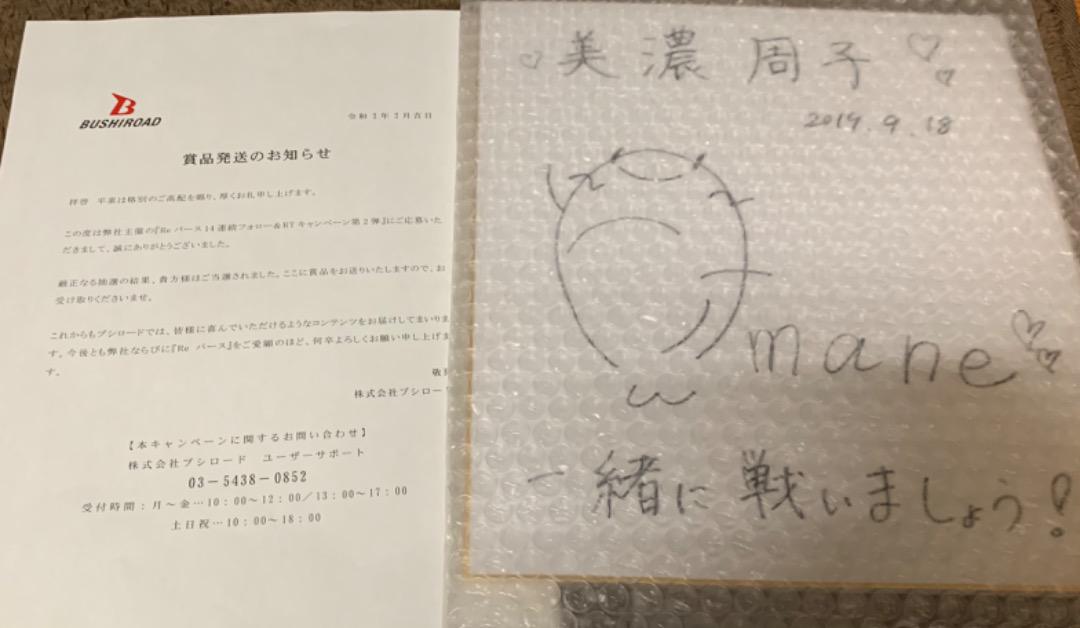 BUSHIROAD
令和2年2月吉日
賞品発送のお知らせ
拝啓 平素は格別のご高配を賜り、厚くお礼申し上げます。
この度は弊社主催の『Re バース14連続フォロー&RTキャンペーン第2弾』にご応募いた
だきまして、誠にありがとうございました。
厳正なる抽選の結果、貴方様はご当選されました。ここに賞品をお送りいたしますので、お
受け取りくださいませ。
これからもブシロードでは、皆様に喜んでいただけるようなコンテンツをお届けしてまいりま
す。今後とも弊社ならびに『Re バース』をご愛顧のほど、何卒よろしくお願い申し上げま
す。
敬
株式会社ブシロー
【本キャンペーンに関するお問い合わせ】
株式会社ブシロード ユーザーサポート
03-5438-0852
受付時間:月~金…10:00~12:00/13:00~17:00
土日祝…10:00~18:00
♡美濃 周子♡♡
2019.9.18
mane♡♡
一緒に戦いましょう!